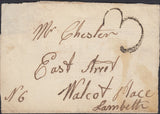 Mr Chester
East Street
No 6
Walcot Place
Lambeth